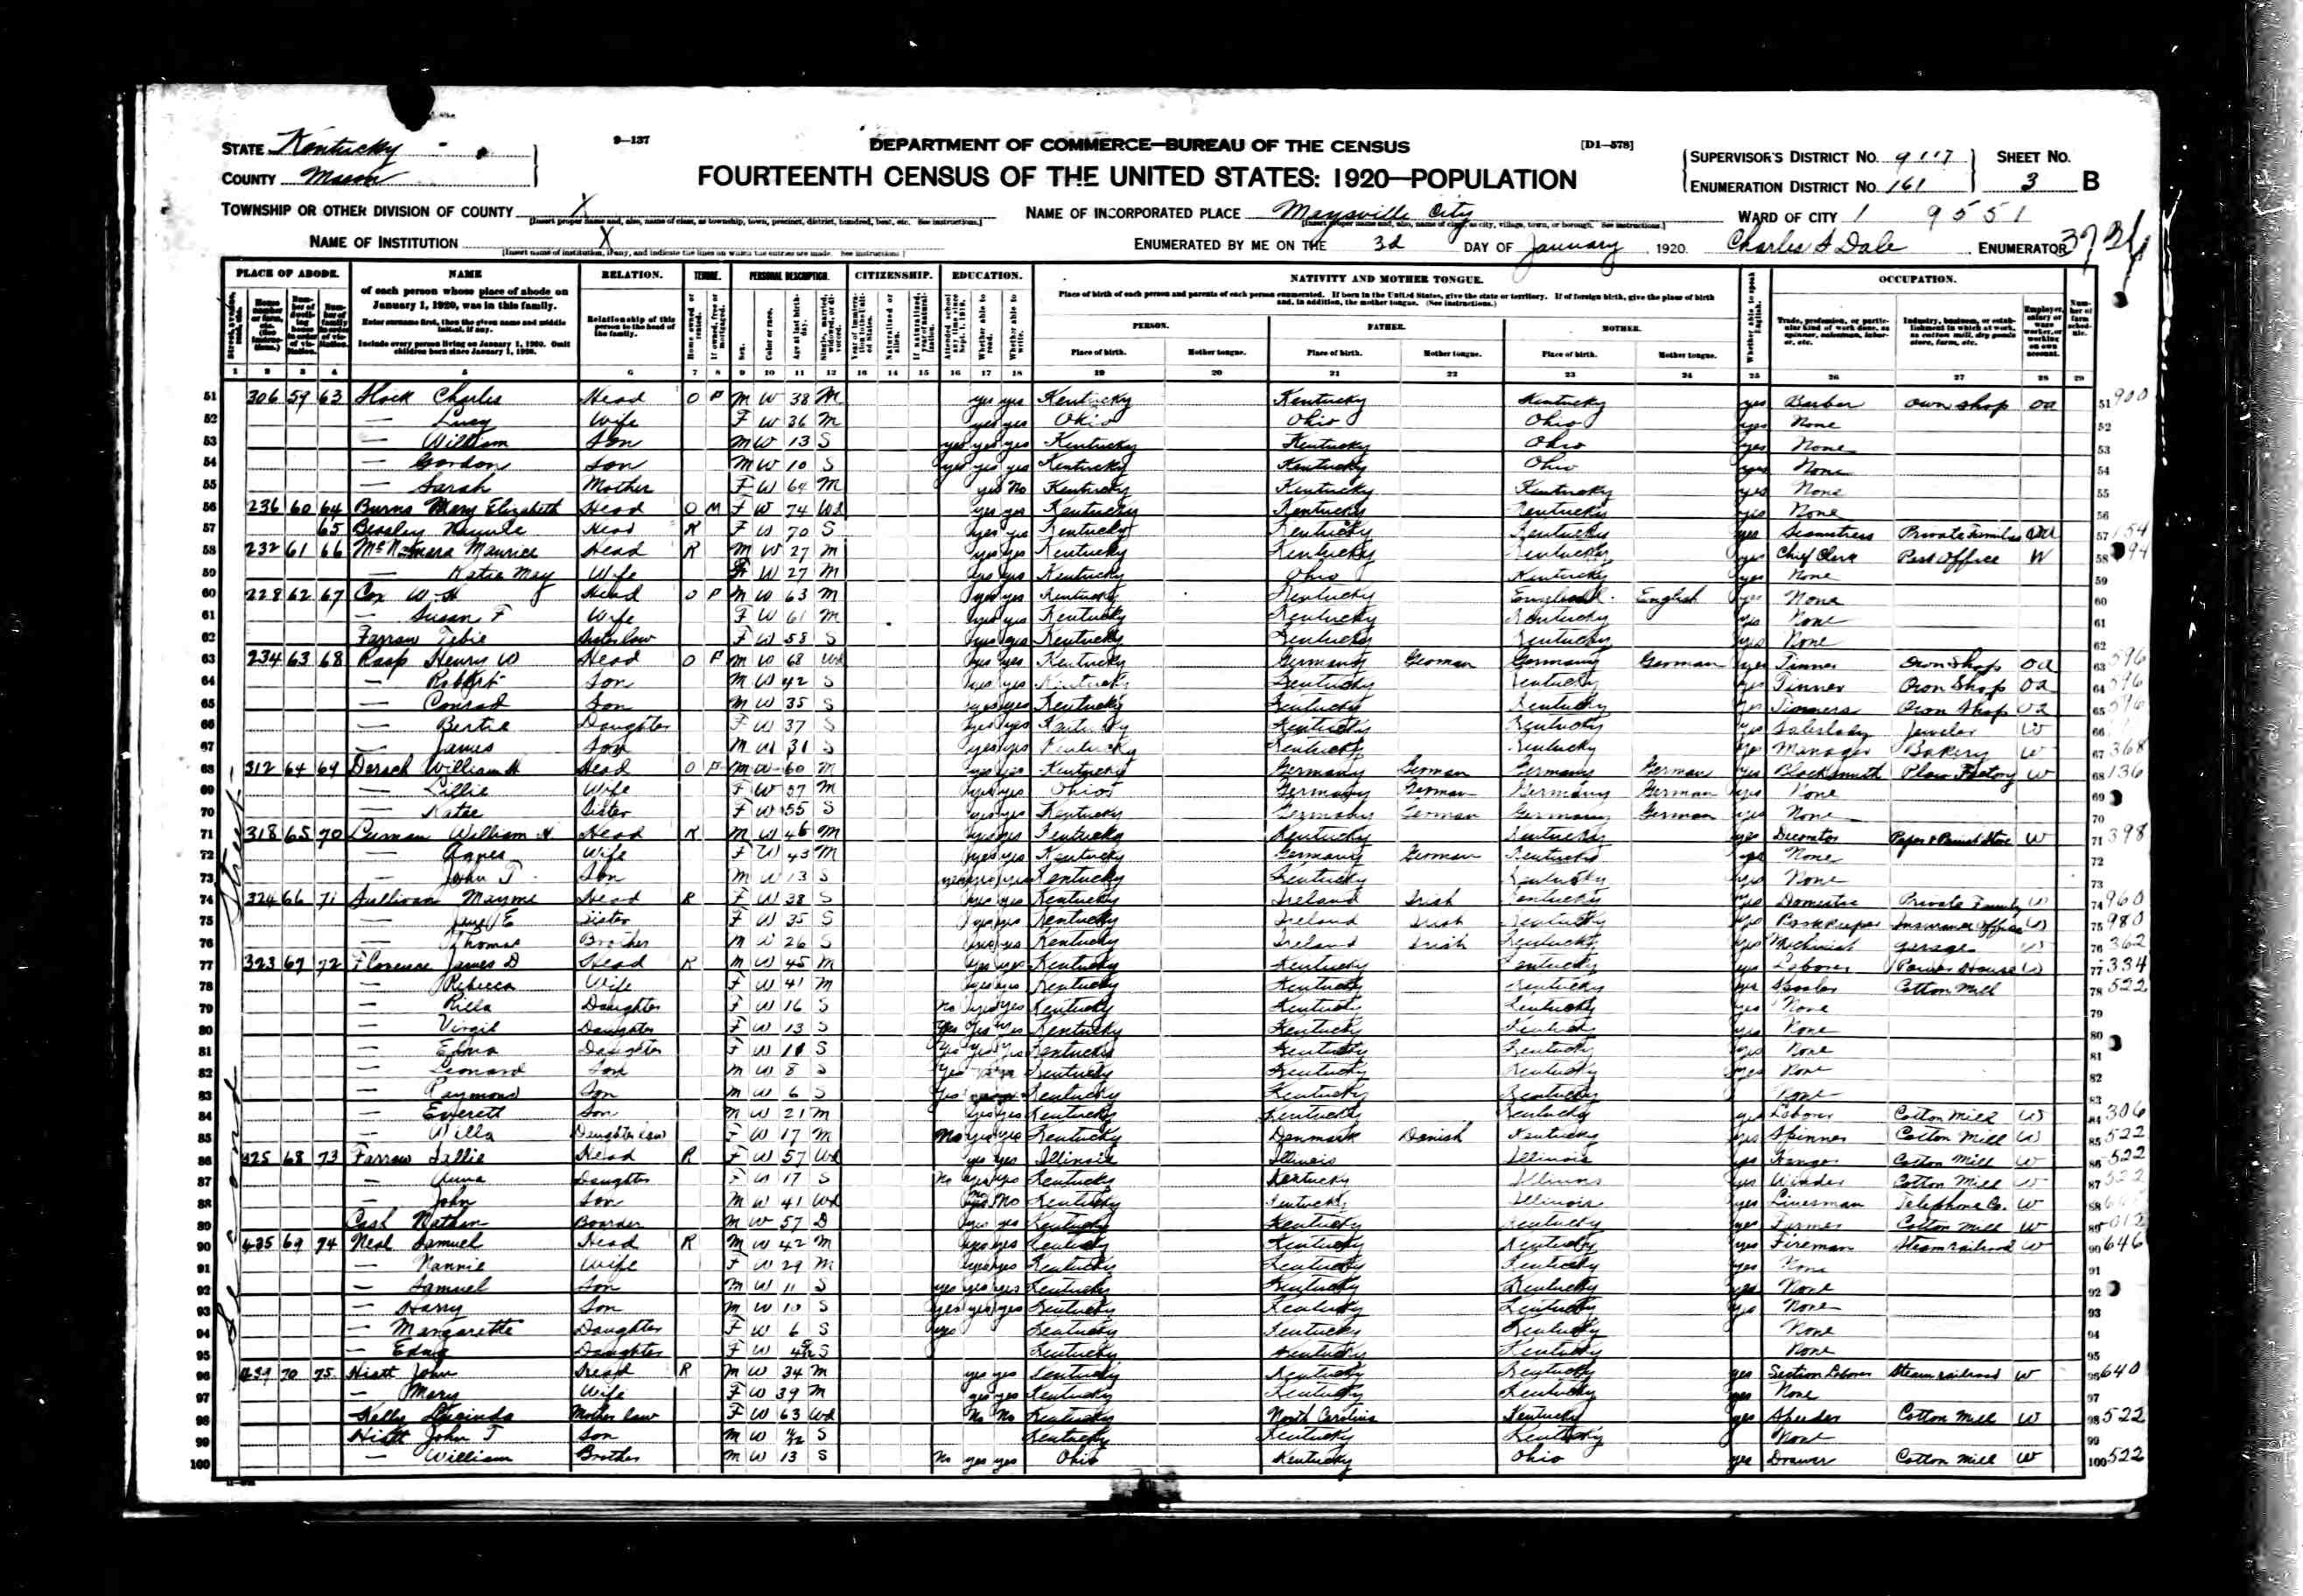 STATE Kentucky
COUNTY Mason
9—137
DEPARTMENT OF COMMERCE—BUREAU OF THE CENSUS
[D1—578]
FOURTEENTH CENSUS OF THE UNITED STATES: 1920—POPULATION
SUPERVISOR'S DISTRICT No. 9
ENUMERATION DISTRICT No. 161
SHEET No. 3 B
TOWNSHIP OR OTHER DIVISION OF COUNTY X
NAME OF INCORPORATED PLACE Maysville City
WARD OF CITY 1 9551
NAME OF INSTITUTION X
ENUMERATED BY ME ON THE 3d DAY OF January, 1920. Charles S Dale ENUMERATOR
PLACE OF ABODE. NAME RELATION. TENURE. PERSONAL DESCRIPTION. CITIZENSHIP. EDUCATION. NATIVITY AND MOTHER TONGUE. OCCUPATION.
of each person whose place of abode on January 1, 1920, was in this family.
Enter surname first, then the given name and middle initial, if any.
Include every person living on January 1, 1920. Omit children born since January 1, 1920.
Relationship of this person to the head of the family.
Place of birth of each person and parents of each person enumerated. If born in the United States, give the state or territory. If of foreign birth, give the place of birth and, in addition, the mother tongue. (See instructions.)
PERSON. FATHER. MOTHER.
Place of birth. Mother tongue. Place of birth. Mother tongue. Place of birth. Mother tongue.
51 306 59 63 Charles Head O F M W 38 M yes yes Kentucky Kentucky Kentucky yes Barber own shop oa
52 — Lucy Wife F W 36 M yes yes Ohio Ohio Ohio yes None
53 — William Son M W 13 S yes yes yes Kentucky Kentucky Ohio yes None
54 — Gordon Son M W 10 S yes yes yes Kentucky Kentucky Ohio yes None
55 — Sarah Mother F W 64 M yes No Kentucky Kentucky Kentucky yes None
56 236 60 64 Burns Mary Elizabeth Head O M F W 74 Wd yes yes Kentucky Kentucky Kentucky yes None
57 65 Beasley Head R F W 70 S yes yes Kentucky Kentucky Kentucky yes Seamstress Private Families
58 232 61 66 McNamara Maurice Head R M W 27 M yes yes Kentucky Kentucky Kentucky yes Chief Clerk Post Office W
59 — Katie May Wife F W 27 M yes yes Kentucky Ohio Kentucky yes None
60 228 62 67 Cox W H Head O F M W 63 M yes yes Kentucky Kentucky England English yes None
61 — Susan F Wife F W 61 M yes yes Kentucky Kentucky Kentucky yes None
62 Farrow Sister law F W 58 S yes yes Kentucky Kentucky Kentucky yes None
63 234 63 68 Rasp Henry W Head O F M W 68 Wd yes yes Kentucky Germany German Germany German yes Tinner Own Shop oa 596
64 — Robert Son M W 42 S yes yes Kentucky Kentucky Kentucky yes Tinner Own Shop oa
65 — Conrad Son M W 35 S yes yes Kentucky Kentucky Kentucky yes Own Shop oa
66 — Bertie Daughter F W 37 S yes yes Kentucky Kentucky Kentucky yes Saleslady Jeweler W
67 — James Son M W 31 S yes yes Kentucky Kentucky Kentucky yes Manager Bakery W 368
68 312 64 69 Dersch William H Head O F M W 60 M yes yes Kentucky Germany German Germany German yes Blacksmith Plow Factory W 136
69 — Lillie Wife F W 57 M yes yes Ohio Germany German Germany German yes None
70 — Katie Sister F W 55 S yes yes Kentucky Germany German Germany German yes None
71 318 65 70 William H Head R M W 46 M yes yes Kentucky Kentucky Kentucky yes Decorator Paper & Paint Store W 398
72 — Agnes Wife F W 43 M yes yes Kentucky Germany German Kentucky yes None
73 — John T Son M W 13 S yes yes yes Kentucky Kentucky Kentucky yes None
74 324 66 71 Sullivan Mayme Head R F W 38 S yes yes Kentucky Ireland Irish Kentucky yes Domestic Private Family W 960
75 — E Sister F W 35 S yes yes Kentucky Ireland Irish Kentucky yes Bookkeeper Insurance Office W 980
76 — Thomas Brother M W 26 S yes yes Kentucky Ireland Irish Kentucky yes Mechanic Garage W 362
77 323 67 72 Florence James D Head R M W 45 M yes yes Kentucky Kentucky Kentucky yes Laborer Power House W 334
78 — Rebecca Wife F W 41 M yes yes Kentucky Kentucky Kentucky yes Spooler Cotton Mill 522
79 — Rilla Daughter F W 16 S No yes yes Kentucky Kentucky Kentucky yes None
80 — Virgil Daughter F W 13 S yes yes yes Kentucky Kentucky Kentucky yes None
81 — Edna Daughter F W S yes yes yes Kentucky Kentucky Kentucky yes None
82 — Leonard Son M W 8 S yes Kentucky Kentucky Kentucky yes None
83 — Raymond Son M W 6 S yes Kentucky Kentucky Kentucky None
84 — Everett Son M W 21 M yes yes Kentucky Kentucky Kentucky yes Laborer Cotton Mill W 306
85 — Willa Daughter law F W 17 M No yes yes Kentucky Denmark Danish Kentucky yes Spinner Cotton Mill W 522
86 325 68 73 Farrow Lillie Head R F W 57 Wd yes yes Illinois Illinois Illinois yes Cotton Mill W 522
87 — Anna Daughter F W 17 S No yes yes Kentucky Kentucky Illinois yes Winder Cotton Mill W 522
88 — John Son M W 41 Wd No Kentucky Kentucky Illinois yes Linesman Telephone Co. W
89 Cash Nathan Boarder M W 57 D yes yes Kentucky Kentucky Kentucky yes Cotton Mill W
90 435 69 74 Neal Samuel Head R M W 42 M yes yes Kentucky Kentucky Kentucky yes Fireman Steam railroad W 646
91 — Nannie Wife F W 29 M yes yes Kentucky Kentucky Kentucky yes None
92 — Samuel Son M W 11 S yes yes yes Kentucky Kentucky Kentucky yes None
93 — Harry Son M W 10 S yes yes yes Kentucky Kentucky Kentucky yes None
94 — Margarette Daughter F W 6 S yes Kentucky Kentucky Kentucky None
95 — Edna Daughter F W S Kentucky Kentucky Kentucky None
96 439 70 75 Hiatt John Head R M W 34 M yes yes Kentucky Kentucky Kentucky yes Section Laborer Steam railroad W 640
97 — Mary Wife F W 39 M yes yes Kentucky Kentucky Kentucky yes None
98 Kelly Lucinda Mother law F W 63 Wd No No Kentucky North Carolina Kentucky yes Speeder Cotton Mill W 522
99 Hiatt John T Son M W S Kentucky Kentucky Kentucky None
100 — William Brother M W 13 S No yes yes Ohio Kentucky Ohio yes Drawer Cotton Mill W 522